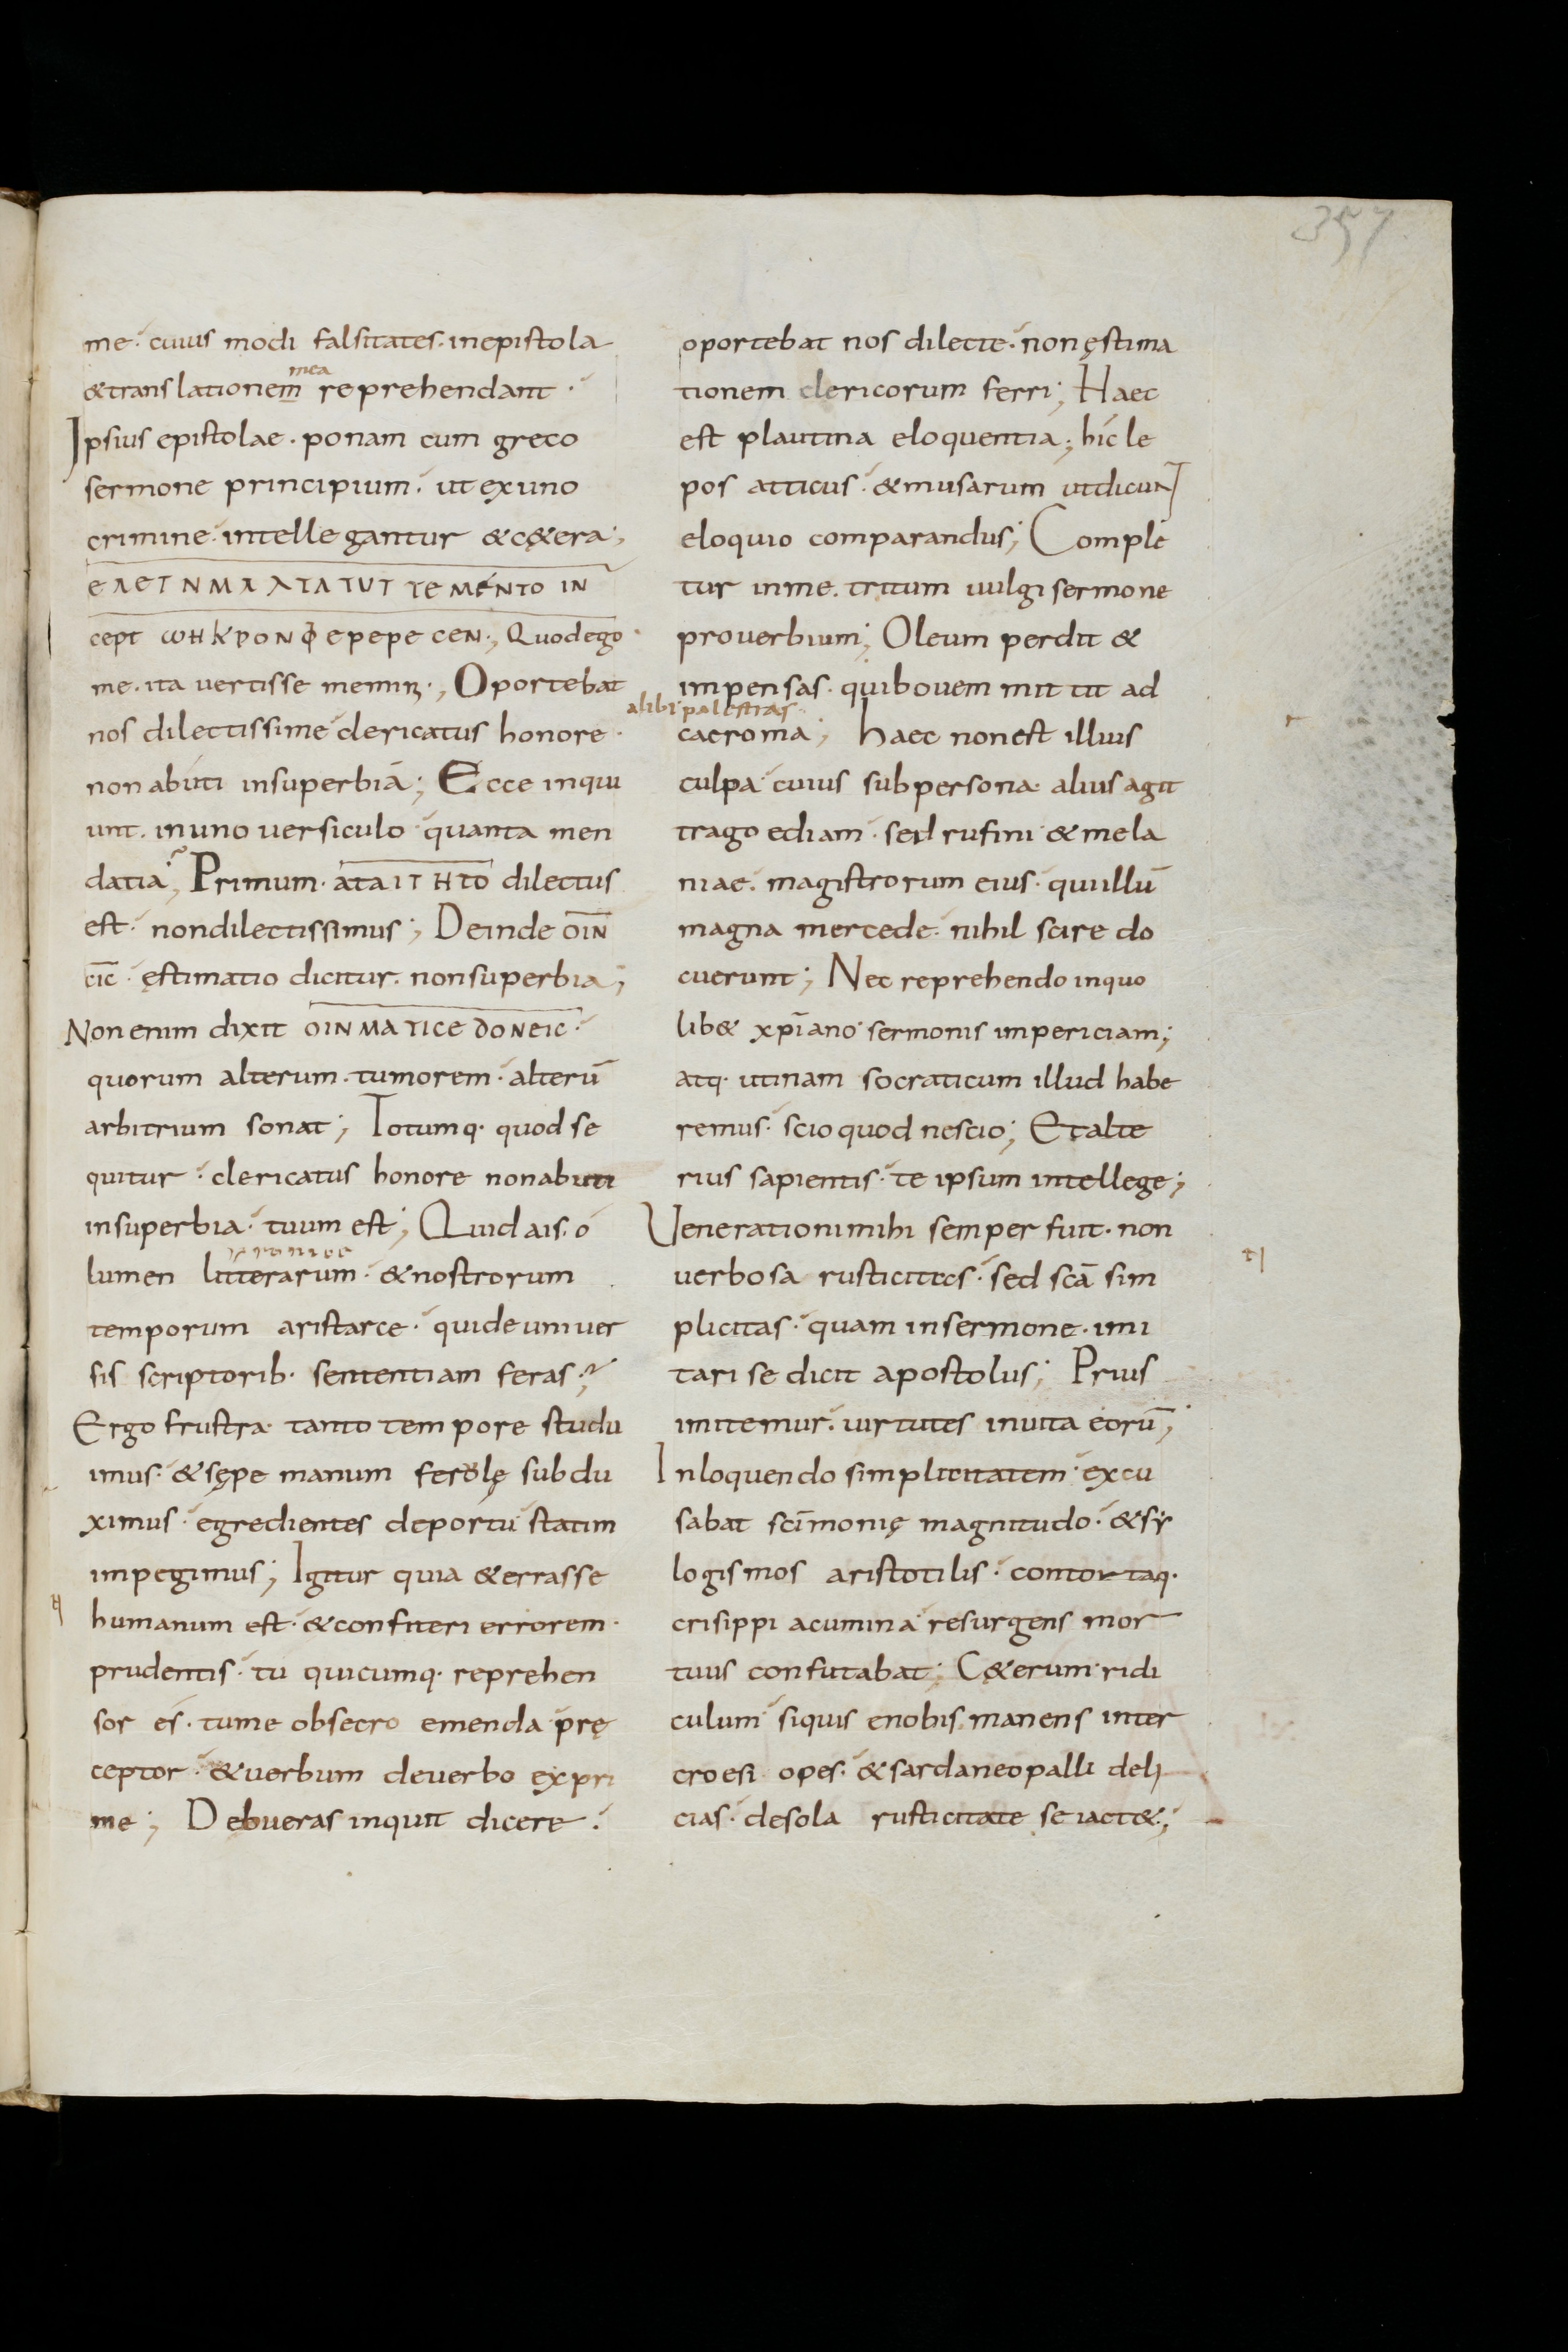 357
me· cuius modi falsitates· inepistola
&translationem reprehendant·
mea
Ipsius epistolae· ponam cum greco
sermone principium· ut exuno
crimine· intellegantur &c&era·,
cept ωHKPONΦEPEPECEN·, Quodego
me· ita vertisse memin&·, Oportebat
nos dilectissime clericatus honore·
non abuti insuperbiā; Ecce inqui
unt· inuno versiculo quanta men
datia; Primum· ATAITHTO dilectus
est· nondilectissimus; Deinde OIN
CIC· ęstimatio dicitur· nonsuperbia;
Nonenim dixit OINMATICE DONEIC·
quorum alterum· tumorem· alterū
arbitrium sonat; Totumq· quod se
quitur· clericatus honore nonabuti
insuperbia· tuum est; Quid ais· o
lumen litterarum· &nostrorum
temporum aristarce· quideuniuer
sis scriptorib· sententiam feras·;
Ergo frustra· tanto tempore studu
imus· &sępe manum ferolę subdu
ximus· egredientes deportu statim
impegimus; Igitur quia &errasse
humanum est· &confiteri errorem·
prudentis· tu quicumq· reprehen
sor es· tume obsecro emenda pre̜
ceptor· &verbum deverbo expri
me; Debueras inquit dicere·
oportebat nos dilecte· non ęstima
tionem clericorum ferri; Haec
est plautina eloquentia; hic le
pos atticus· &musarum utdicunt
eloquio comparandus; Comple
tur inme· tritum uulgi sermone
proverbium; Oleum perdit &
impensas· quibovem mittit ad
alibi palestras
caeroma; haec nonest illius
culpa· cuius subpersona· alius agit
tragoediam· sed rufini &mela
niae· magistrorum eius· quiillū
magna mercede· nihil scire do
cuerunt; Nec reprehendo inquo
lib& xp̄iano sermonis impericiam;
atq· utinam socraticum illud habe
remus· scio quod nescio; Etalte
rius sapientis· te ipsum intellege;
Venerationimihi semper fuit· non
verbosa rusticitas· sed scā sim
plicitas· quam insermone· imi
tari se dicit apostolus; Prius
imitemur· virtutes invita eorū;
Inloquendo simplicitatem· excu
sabat scīmonię magnitudo· &sy
logismos aristotilis· contortaq·
crisippi acumina resurgens mor
tuus confutabat; C&erum· ridi
culum siquis enobis manens inter
croesi opes· &sardaneopalli deli
cias· desola rusticitate se iact&·;